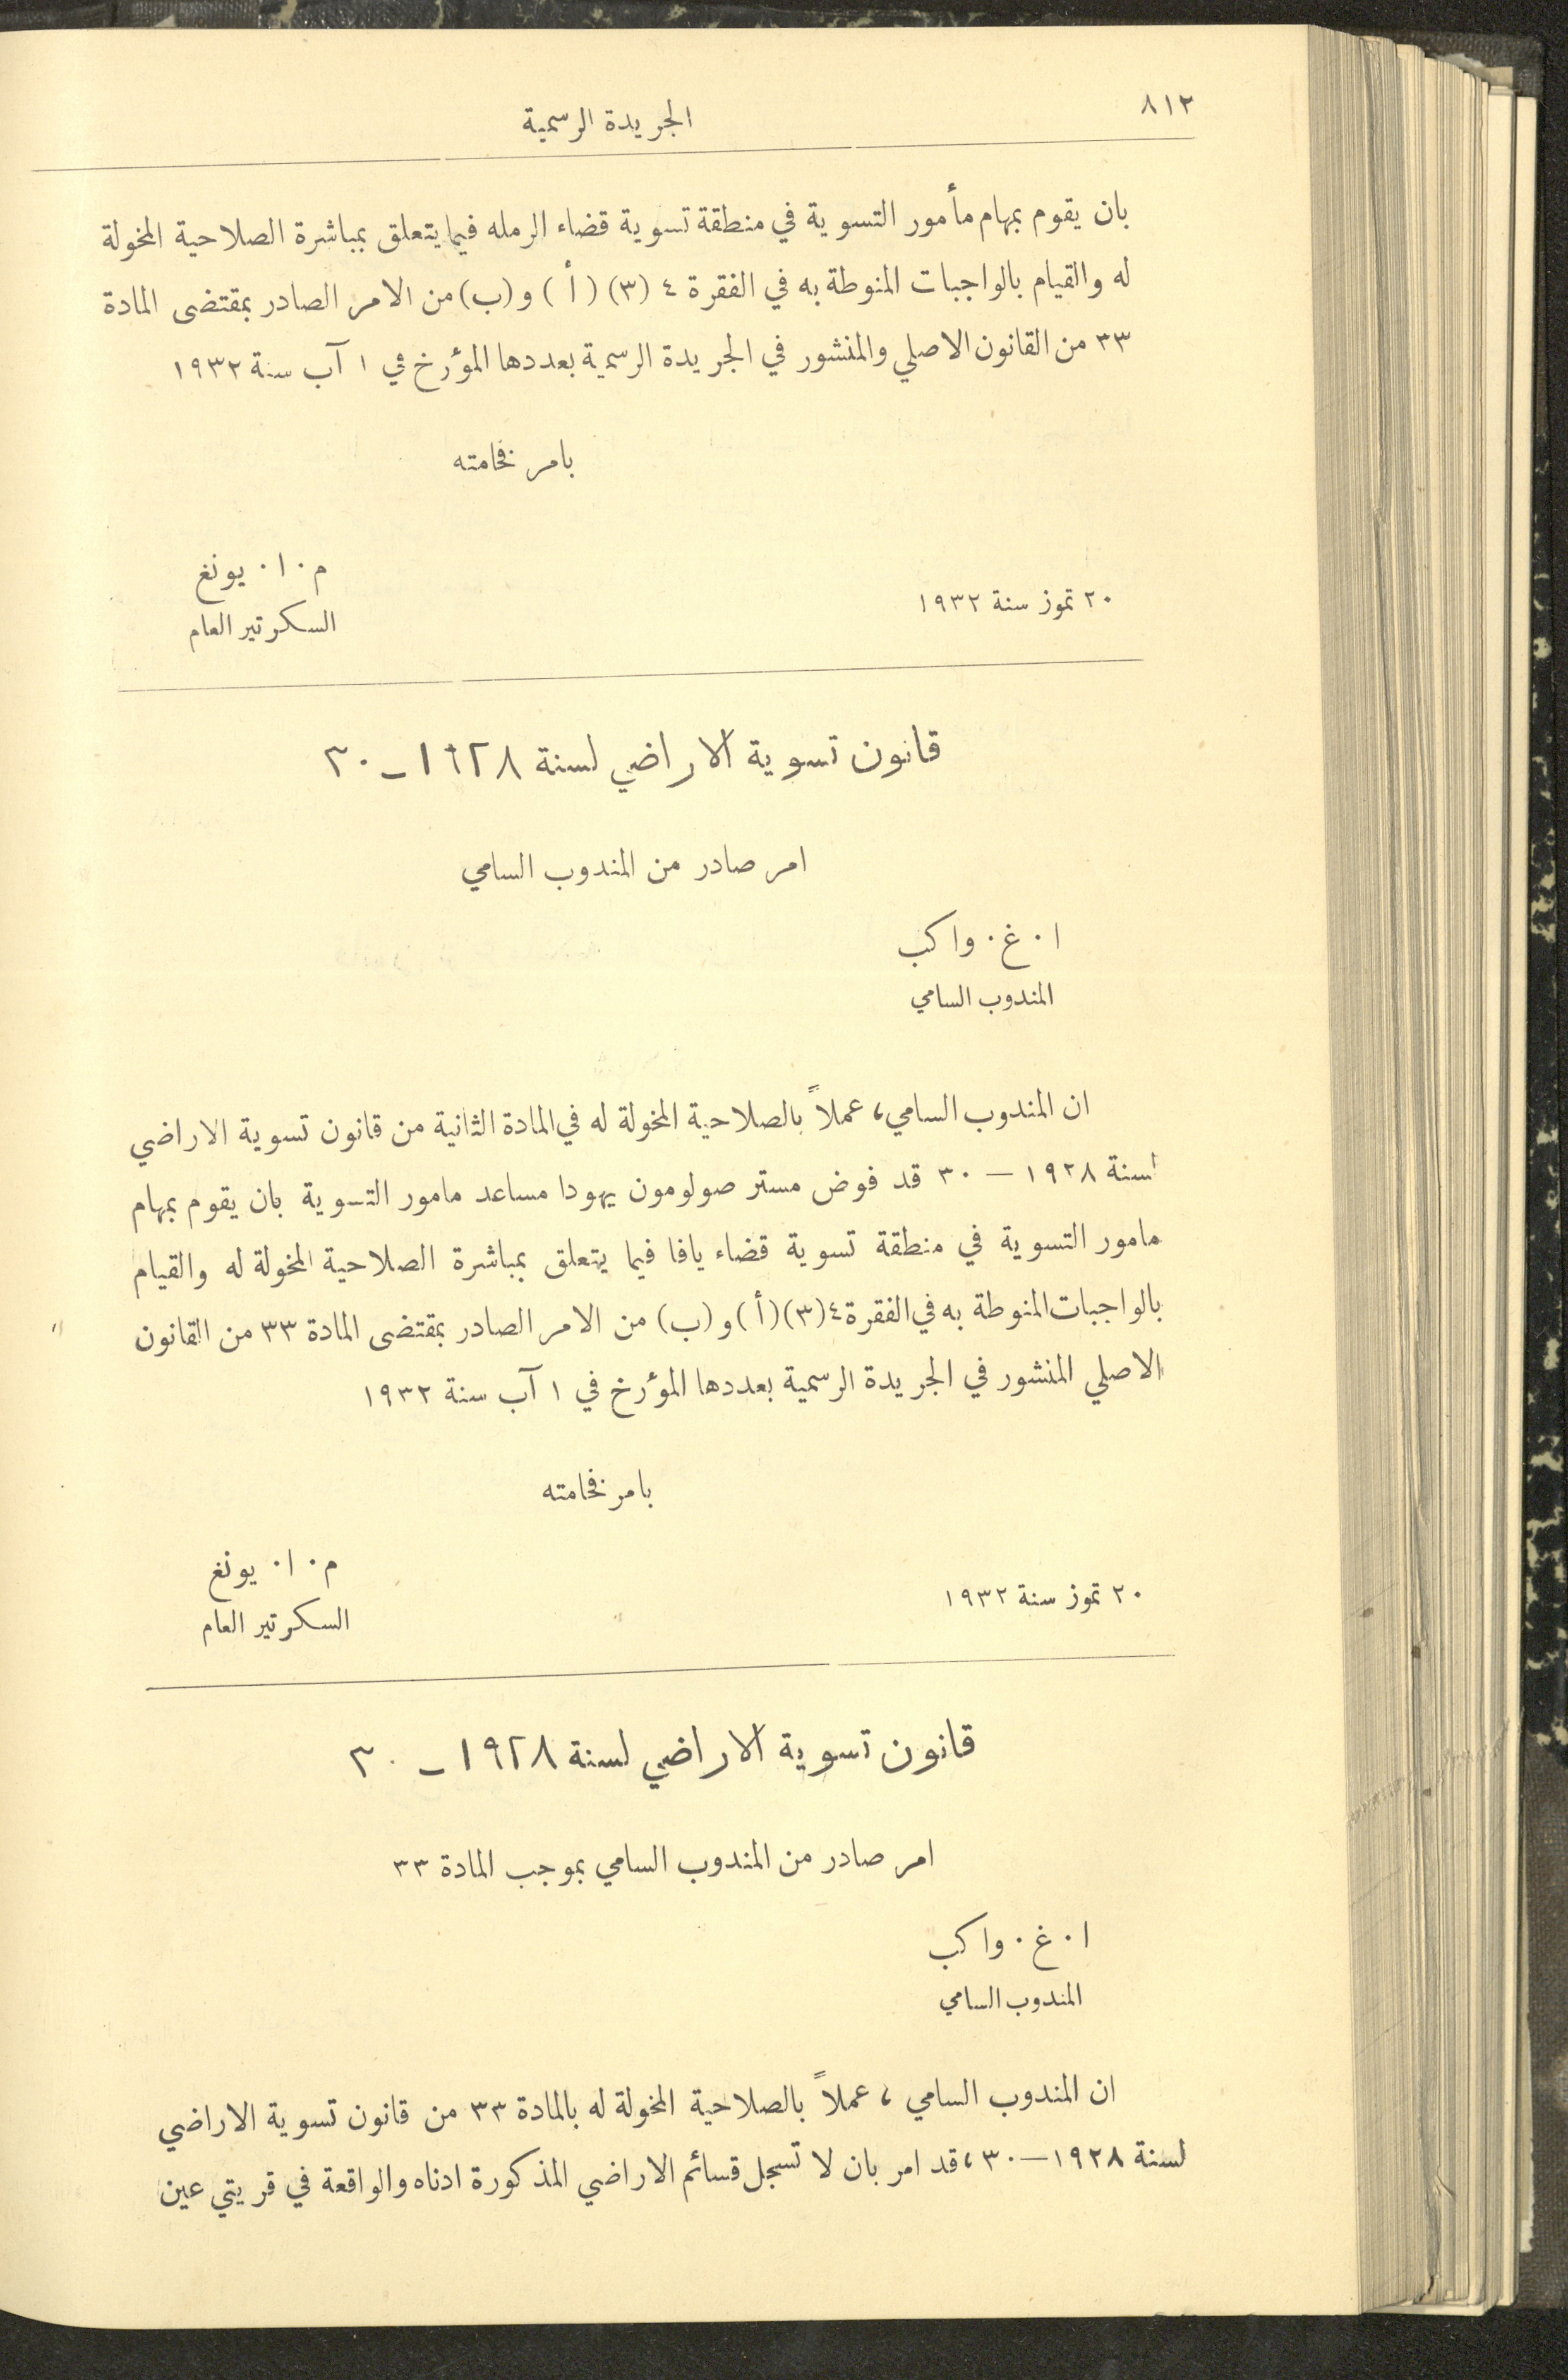 ٨١٢
الجريدة الرسمية
بان يقوم بمهام مأمور التسوية في منطقة تسوية قضاء الرمله فيما يتعلق بمباشرة الصلاحية المخولة
له والقيام بالواجبات المنوطة به في الفقرة ٤ (٣) (أ) و (ب) من الامر الصادر بمقتضى المادة
٣٣ من القانون الاصلي والمنشور في الجريدة الرسمية بعددها المؤرخ في ١ آب سنة ١٩٣٢
بامر فخامته
م٠ ا٠ يونغ
٢٠ تموز سنة ١٩٣٢
السكرتير العام
قانون تسوية الاراضي لسنة ١٩٢٨ــ٣٠
امر صادر من المندوب السامي
ا٠ غ٠ واكب
المندوب السامي
ان المندوب السامي، عملاً بالصلاحية المخولة له في المادة الثانية من قانون تسوية الاراضي
لسنة ١٩٢٨ — ٣٠ قد فوض مستر صولومون يهودا مساعد مامور التسوية بان يقوم بمهام
مامور التسوية في منطقة تسوية قضاء يافا فيما يتعلق بمباشرة الصلاحية المخولة له والقيام
بالواجبات المنوطة به في الفقرة ٤ (٣) (أ) و (ب) من الامر الصادر بمقتضى المادة ٣٣ من القانون
الاصلي المنشور في الجريدة الرسمية بعددها المؤرخ في ١ آب سنة ١٩٣٢
بامر فخامته
م٠ ا٠ يونغ
٢٠ تموز سنة ١٩٣٢
السكرتير العام
قانون تسوية الاراضي لسنة ١٩٢٨ــ٣٠
امر صادر من المندوب السامي بموجب المادة ٣٣
ا٠ غ٠ واكب
المندوب السامي
ان المندوب السامي ، عملاً بالصلاحية المخولة له بالمادة ٣٣ من قانون تسوية الاراضي
لسنة ١٩٢٨—٣٠، قد امر بان لا تسجل قسائم الاراضي المذكورة ادناه والواقعة في قريتي عين